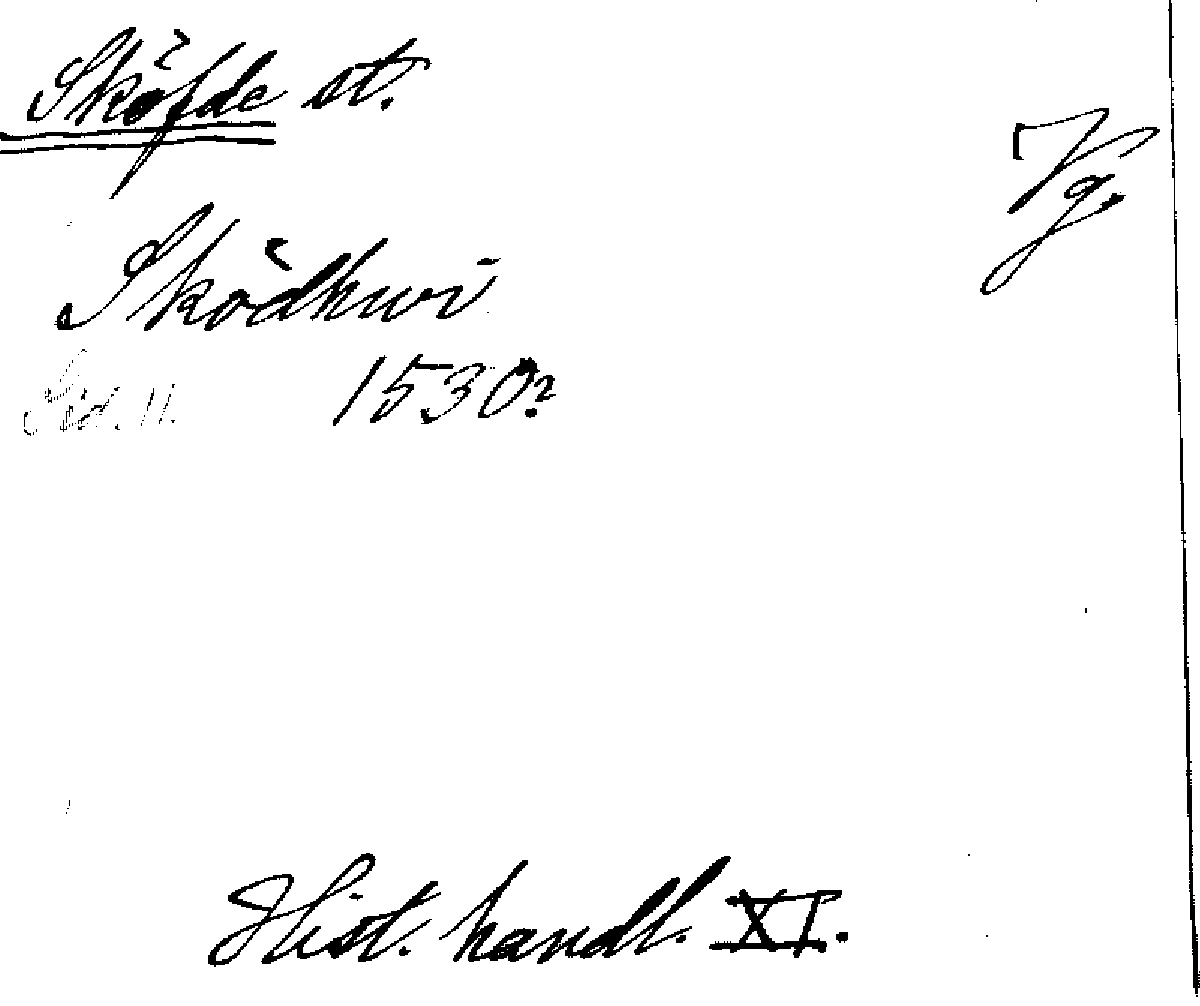 Sköfde st.
Vg.
Sködhwi
Sid. 11. 1530?
Hist. handl. XI.